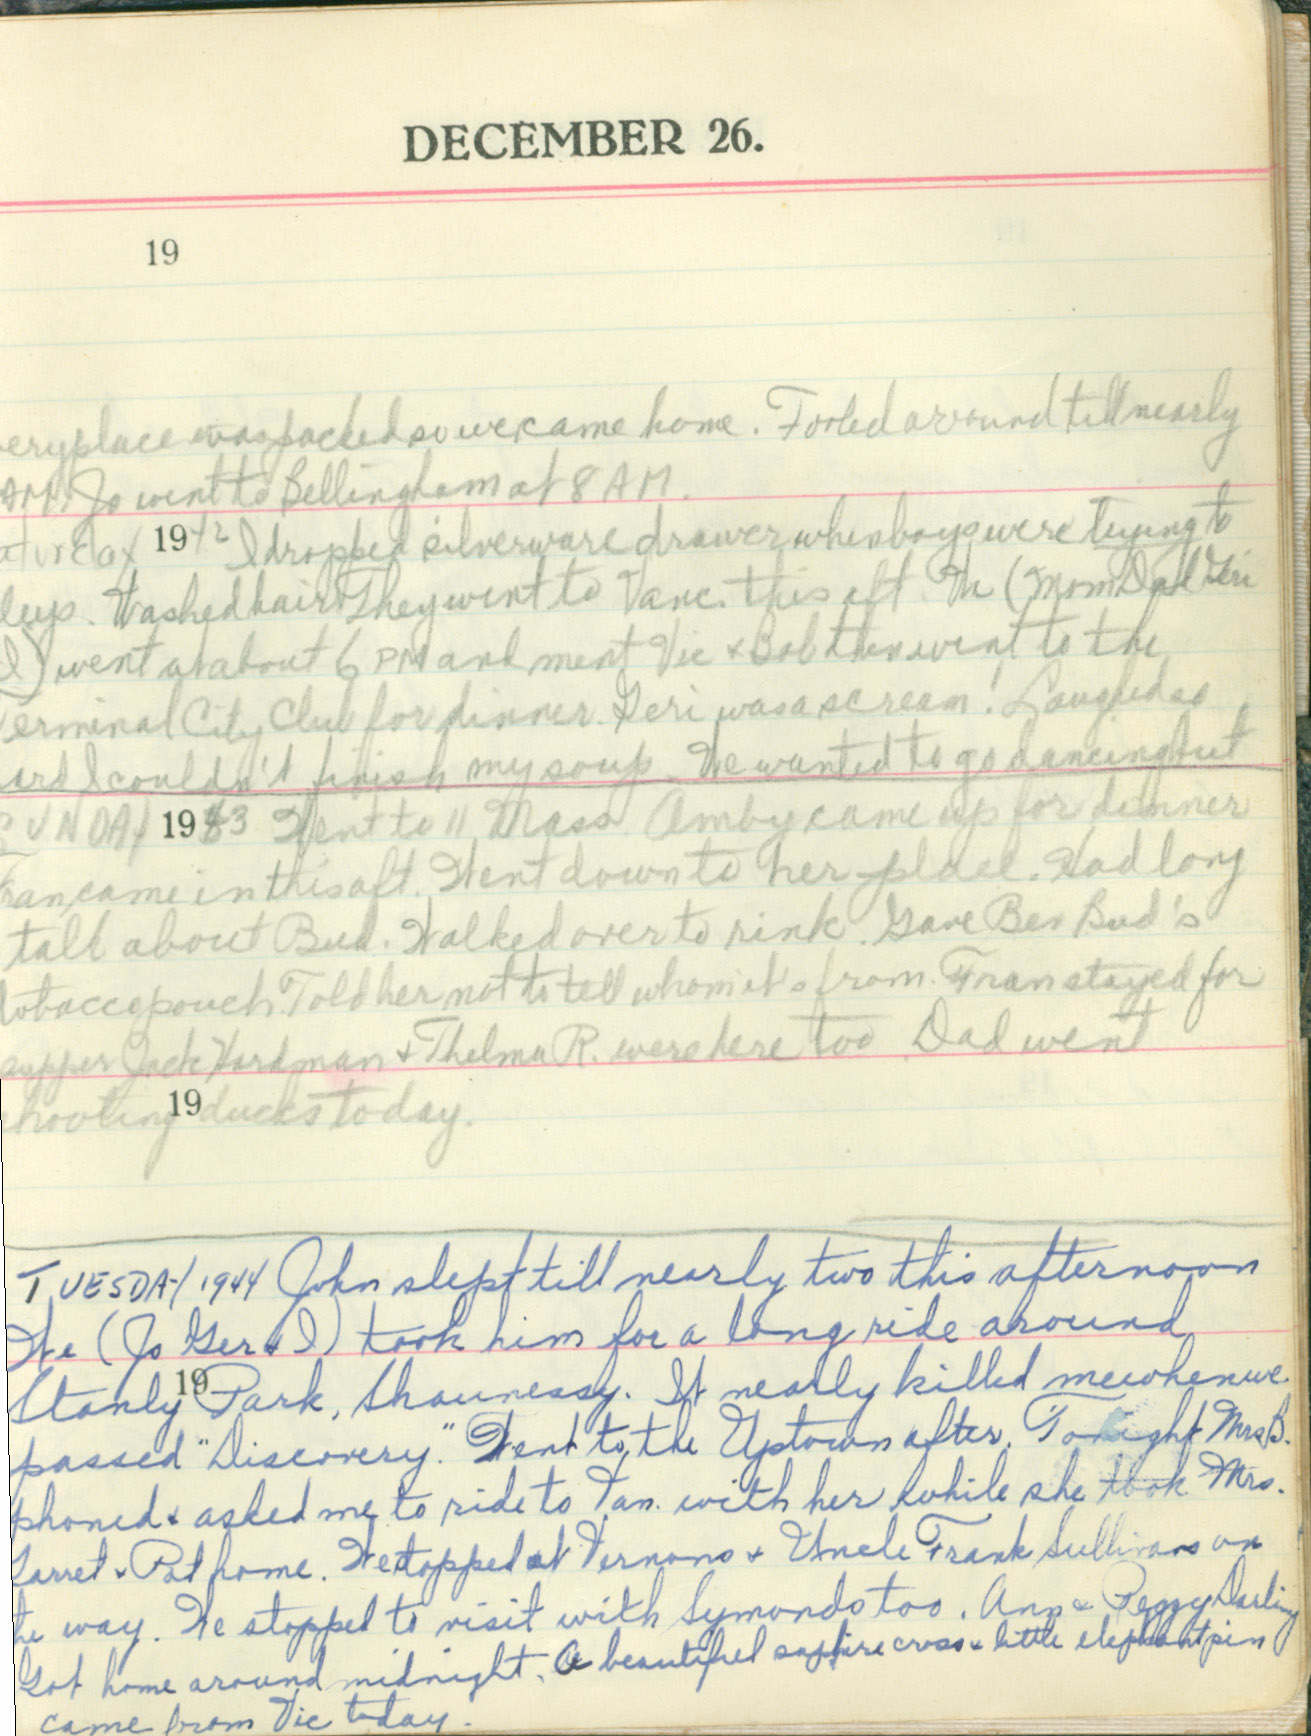 DECEMBER 26.
19
veryplace was packed so we came home. Fooled around till nearly
AM. Jo went to Bellingham at 8 AM.
aturday 1942 I dropped silverware drawer when boys were trying to
leep. Washed hair. They went to Vanc. this aft. We (Mom Dad Geri
I) went at about 6 PM and ment Vic & Bob then went to the
Terminal City Club for dinner. Geri was a scream! Laughed so
ard I couldn't finish my soup. We wanted to go dancing but
SUNDAY 1943 Went to 11 Mass. Amby came up for dinner
Fran came in this aft. Went down to her place. Had long
talk about Bud. Walked over to rink. Gave Bev Bud's
tobacco pouch. Told her not to tell whom it's from. Fran stayed for
supper Jack Hardman & Thelma R. were here too. Dad went
19
shooting ducks today.
TUESDAY 1944 John slept till nearly two this afternoon
We (Jo Ger & I) took him for a long ride around
19
Stanly Park, Shaunessy. It nearly killed me when we
passed "Discovery." Went to the Uptown after. Tonight Mrs B.
phoned & asked me to ride to Van. with her while she took Mrs.
Garret & Pat home. We stopped at Vernons & Uncle Frank Sullivans on
the way. We stopped to visit with Symonds too. Ann & Peggy Darling
Got home around midnight. A beautiful sapfire cross & little elephant pin
came from Vic today.